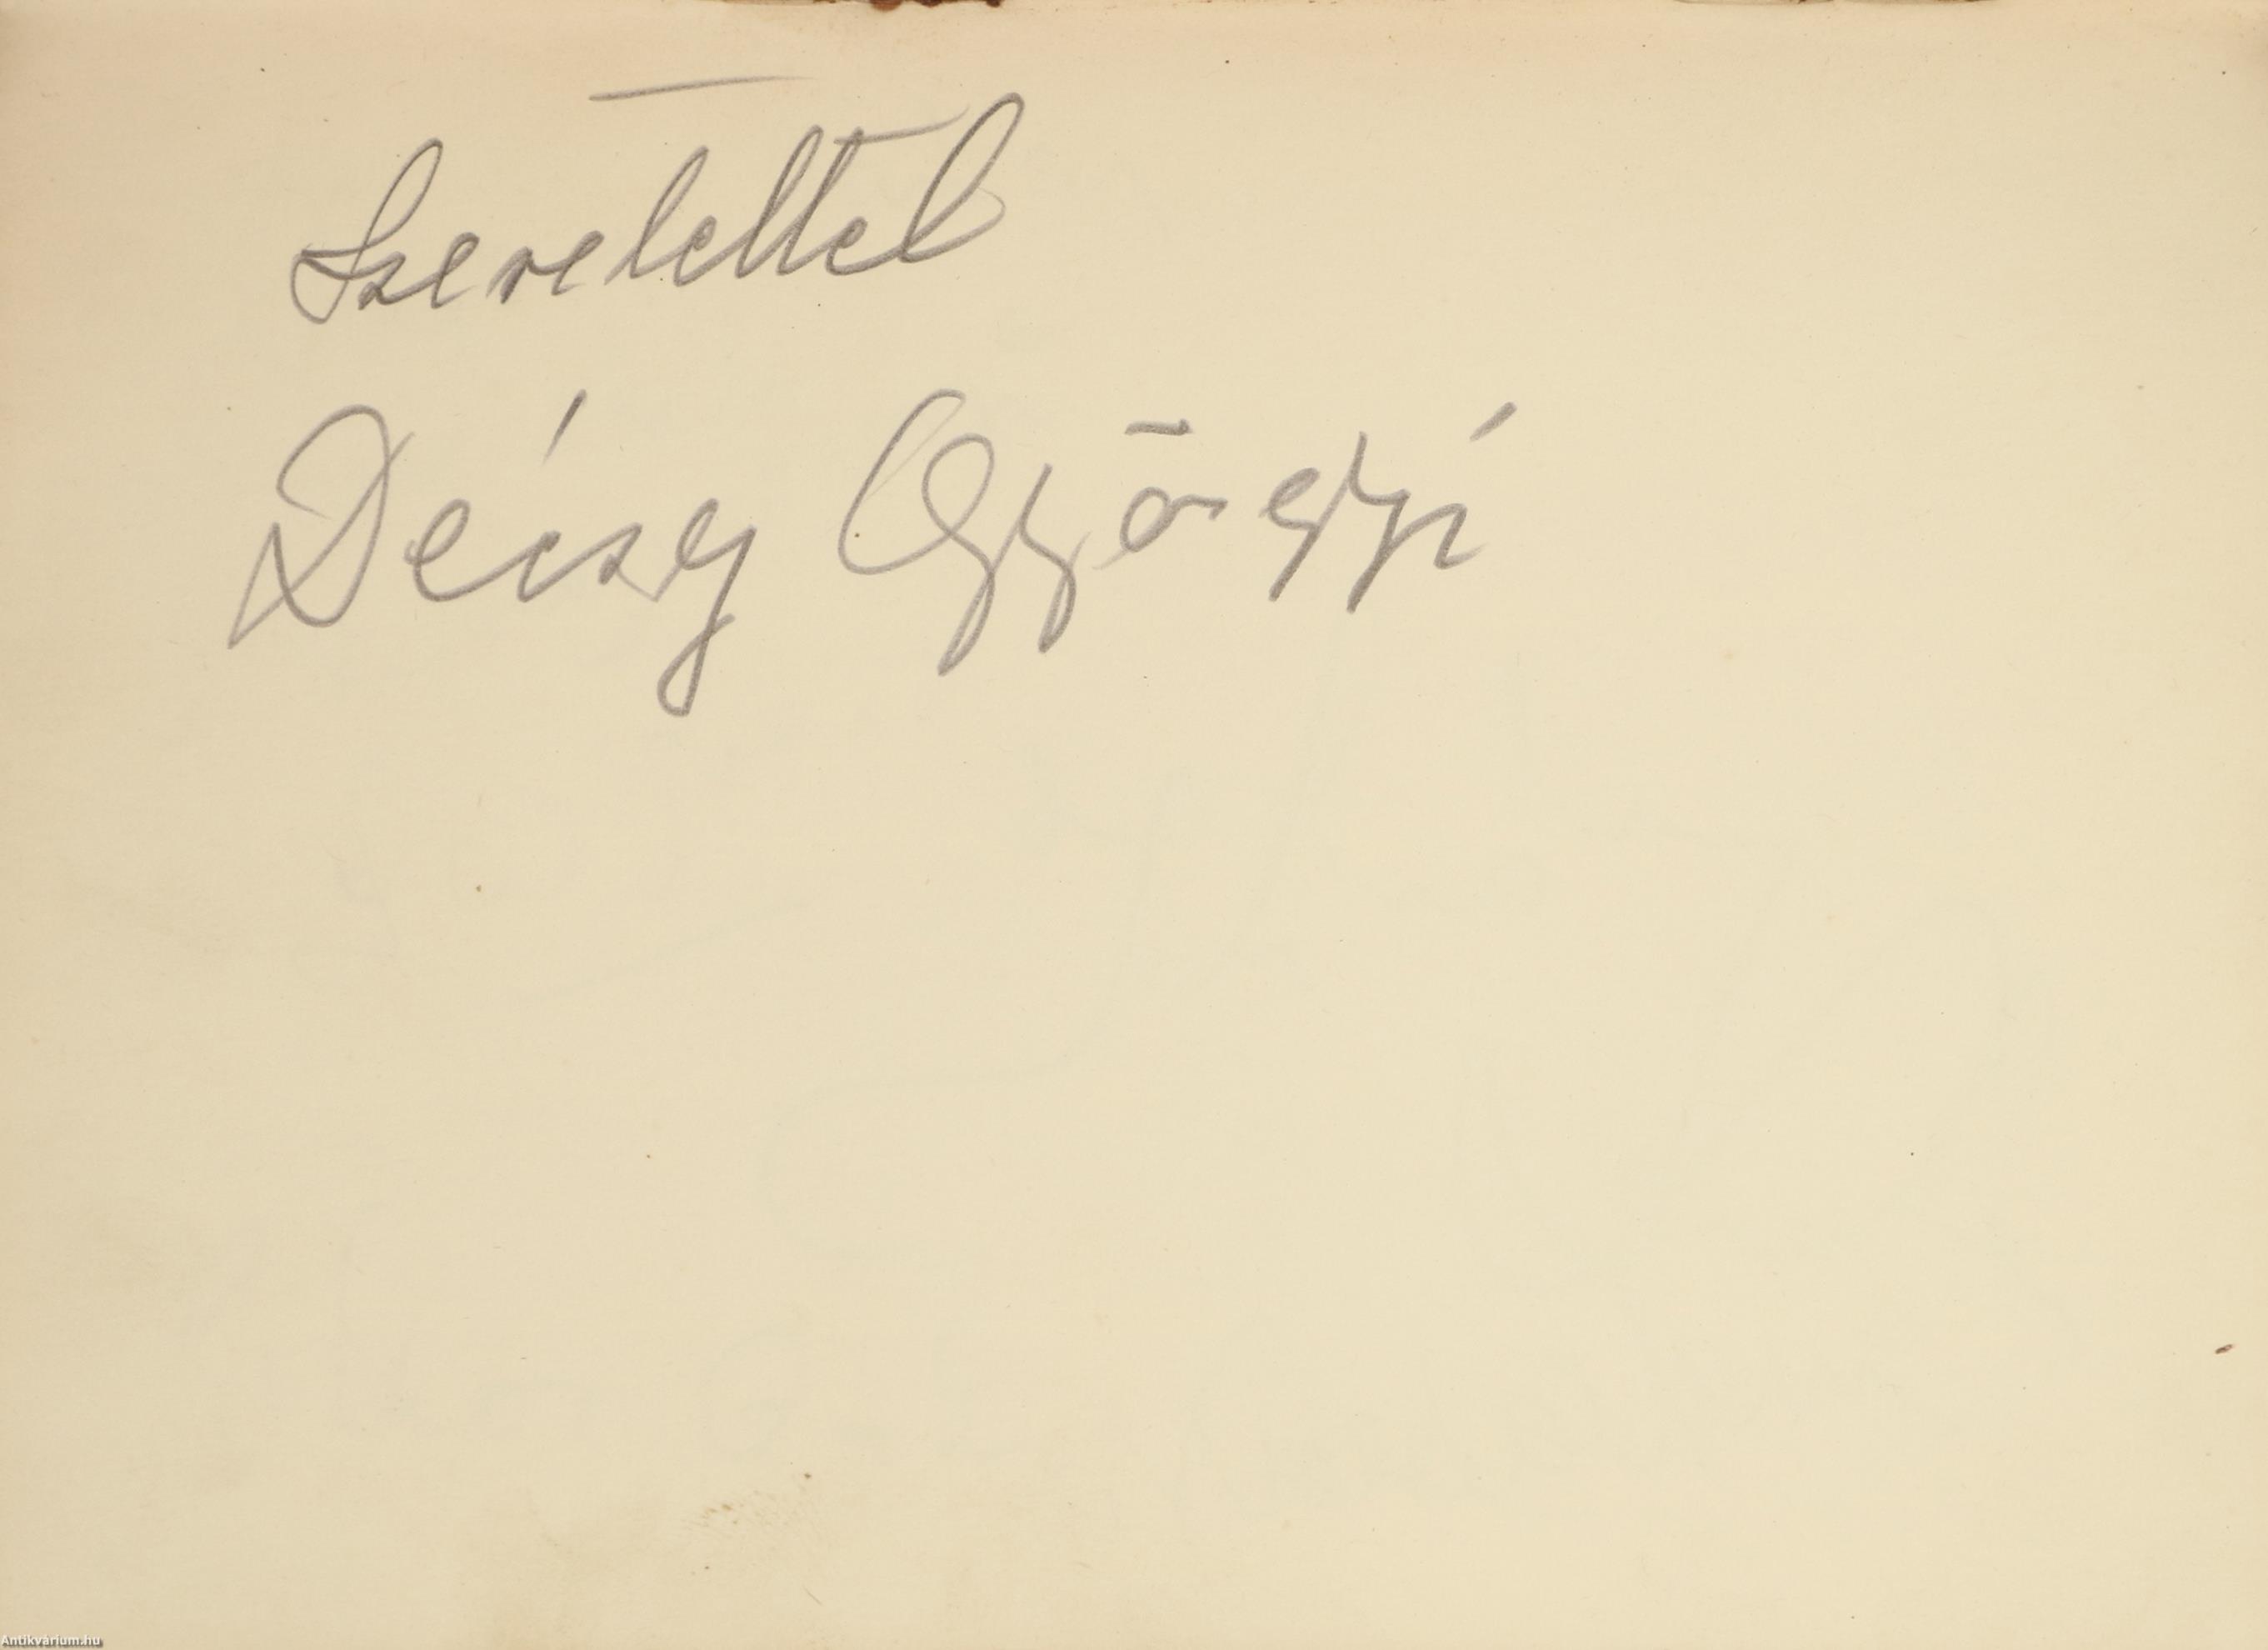 Szeretettel
Décsy Györgyi
Antikvárium.hu